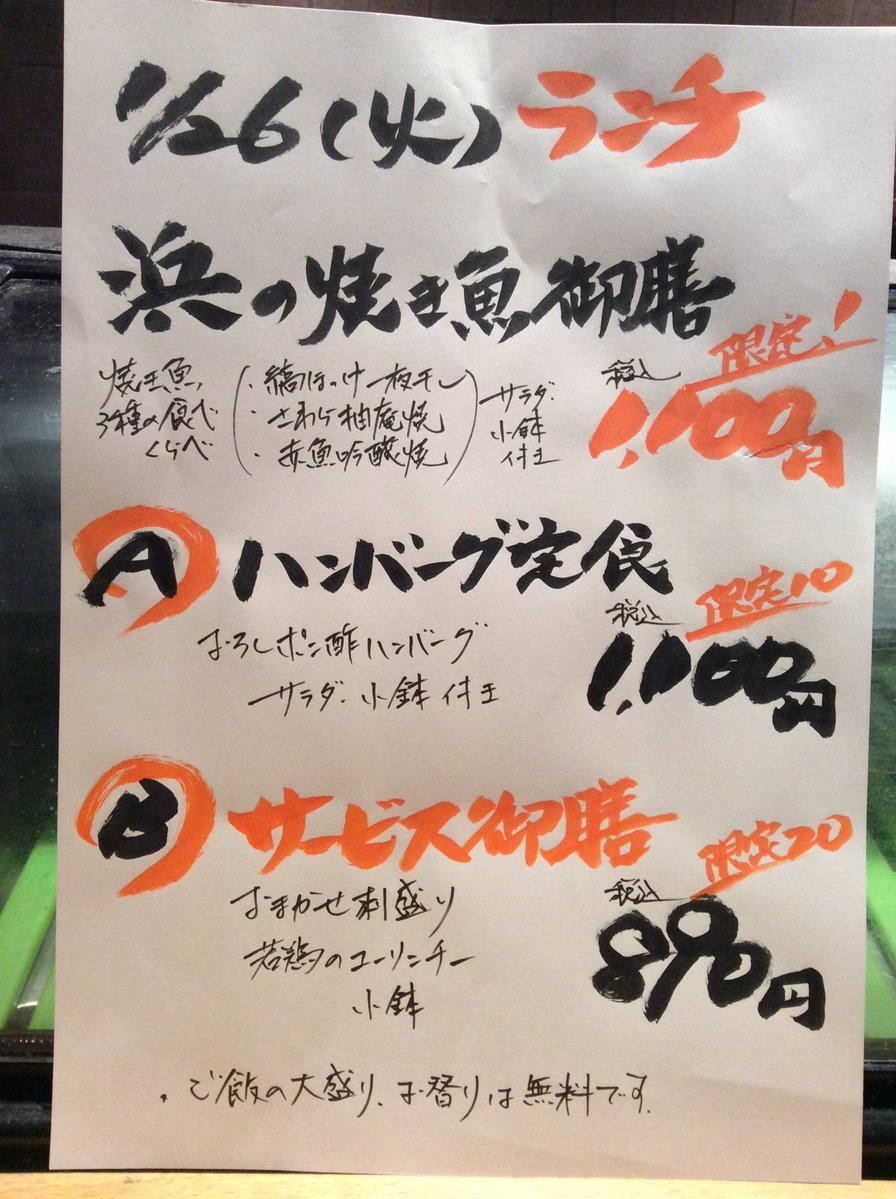 1/26(火)ランチ
浜の焼き魚御膳
限定!
焼き魚、
3種の食べ
くらべ
・縞ほっけ一夜干し
・さわら柚庵焼
・赤魚吟醸焼
サラダ・
小鉢
付き
税込
1,100円
A ハンバーグ定食
限定10
おろしポン酢ハンバーグ
サラダ・小鉢付き
税込
1,100円
B サービス御膳
限定20
おまかせ刺盛り
若鶏のユーリンチー
小鉢
税込
890円
・ご飯の大盛り、お替りは無料です。